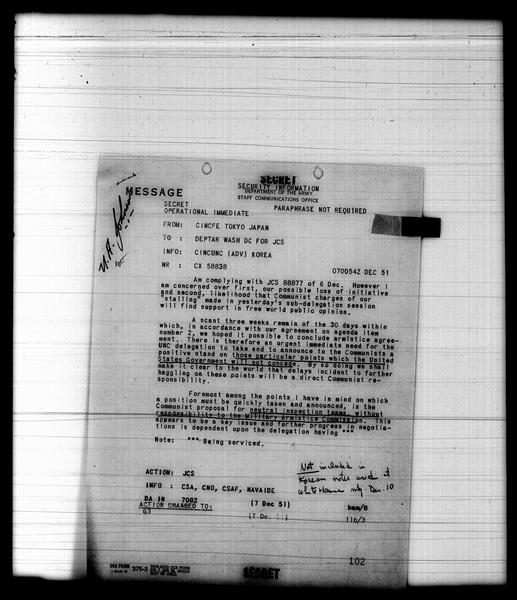 SECRET
SECURITY INFORMATION
DEPARTMENT OF THE ARMY
STAFF COMMUNICATIONS OFFICE
MESSAGE
U.A. Johnson
SECRET
OPERATIONAL IMMEDIATE
PARAPHRASE NOT REQUIRED
FROM: CINCFE TOKYO JAPAN
TO : DEPTAR WASH DC FOR JCS
INFO: CINCUNC (ADV) KOREA
NR : CX 58838 070054Z DEC 51
Am complying with JCS 88877 of 6 Dec. However I
am concerned over first, our possible loss of initiative
and second, likelihood that Communist charges of our
"stalling" made in yesterday's sub-delegation session
will find support in free world public opinion.
A scant three weeks remain of the 30 days within
which, in accordance with our agreement on agenda item
number 2, we hoped it possible to conclude armistice agree-
ment. There is therefore an urgent immediate need for the
UNC delegation to take and to announce to the Communists a
positive stand on those particular points which the United
States Government will not concede. By so doing we shall
make it clear to the world that delays incident to further
haggling on these points will be a direct Communist re-
sponsibility.
Foremost among the points I have in mind on which
a position must be quickly taken and announced, is the
Communist proposal for neutral inspection teams, without
responsibility to the Military Armistice Commission. This
appears to be a key issue and further progress in negotia-
tions is dependent upon the delegation having ***
Note: *** Being serviced.
ACTION: JCS
INFO : CSA, CNO, CSAF, NAVAIDE
DA IN 7082 (7 Dec 51) bam/8
ACTION CHANGED TO:
G3 (7 Dec 51) llb/3
Not included in
Korean notes used at
White House mtg. Dec. 10
102
OCS FORM 375-3
REPLACES OCS FORM
SECRET